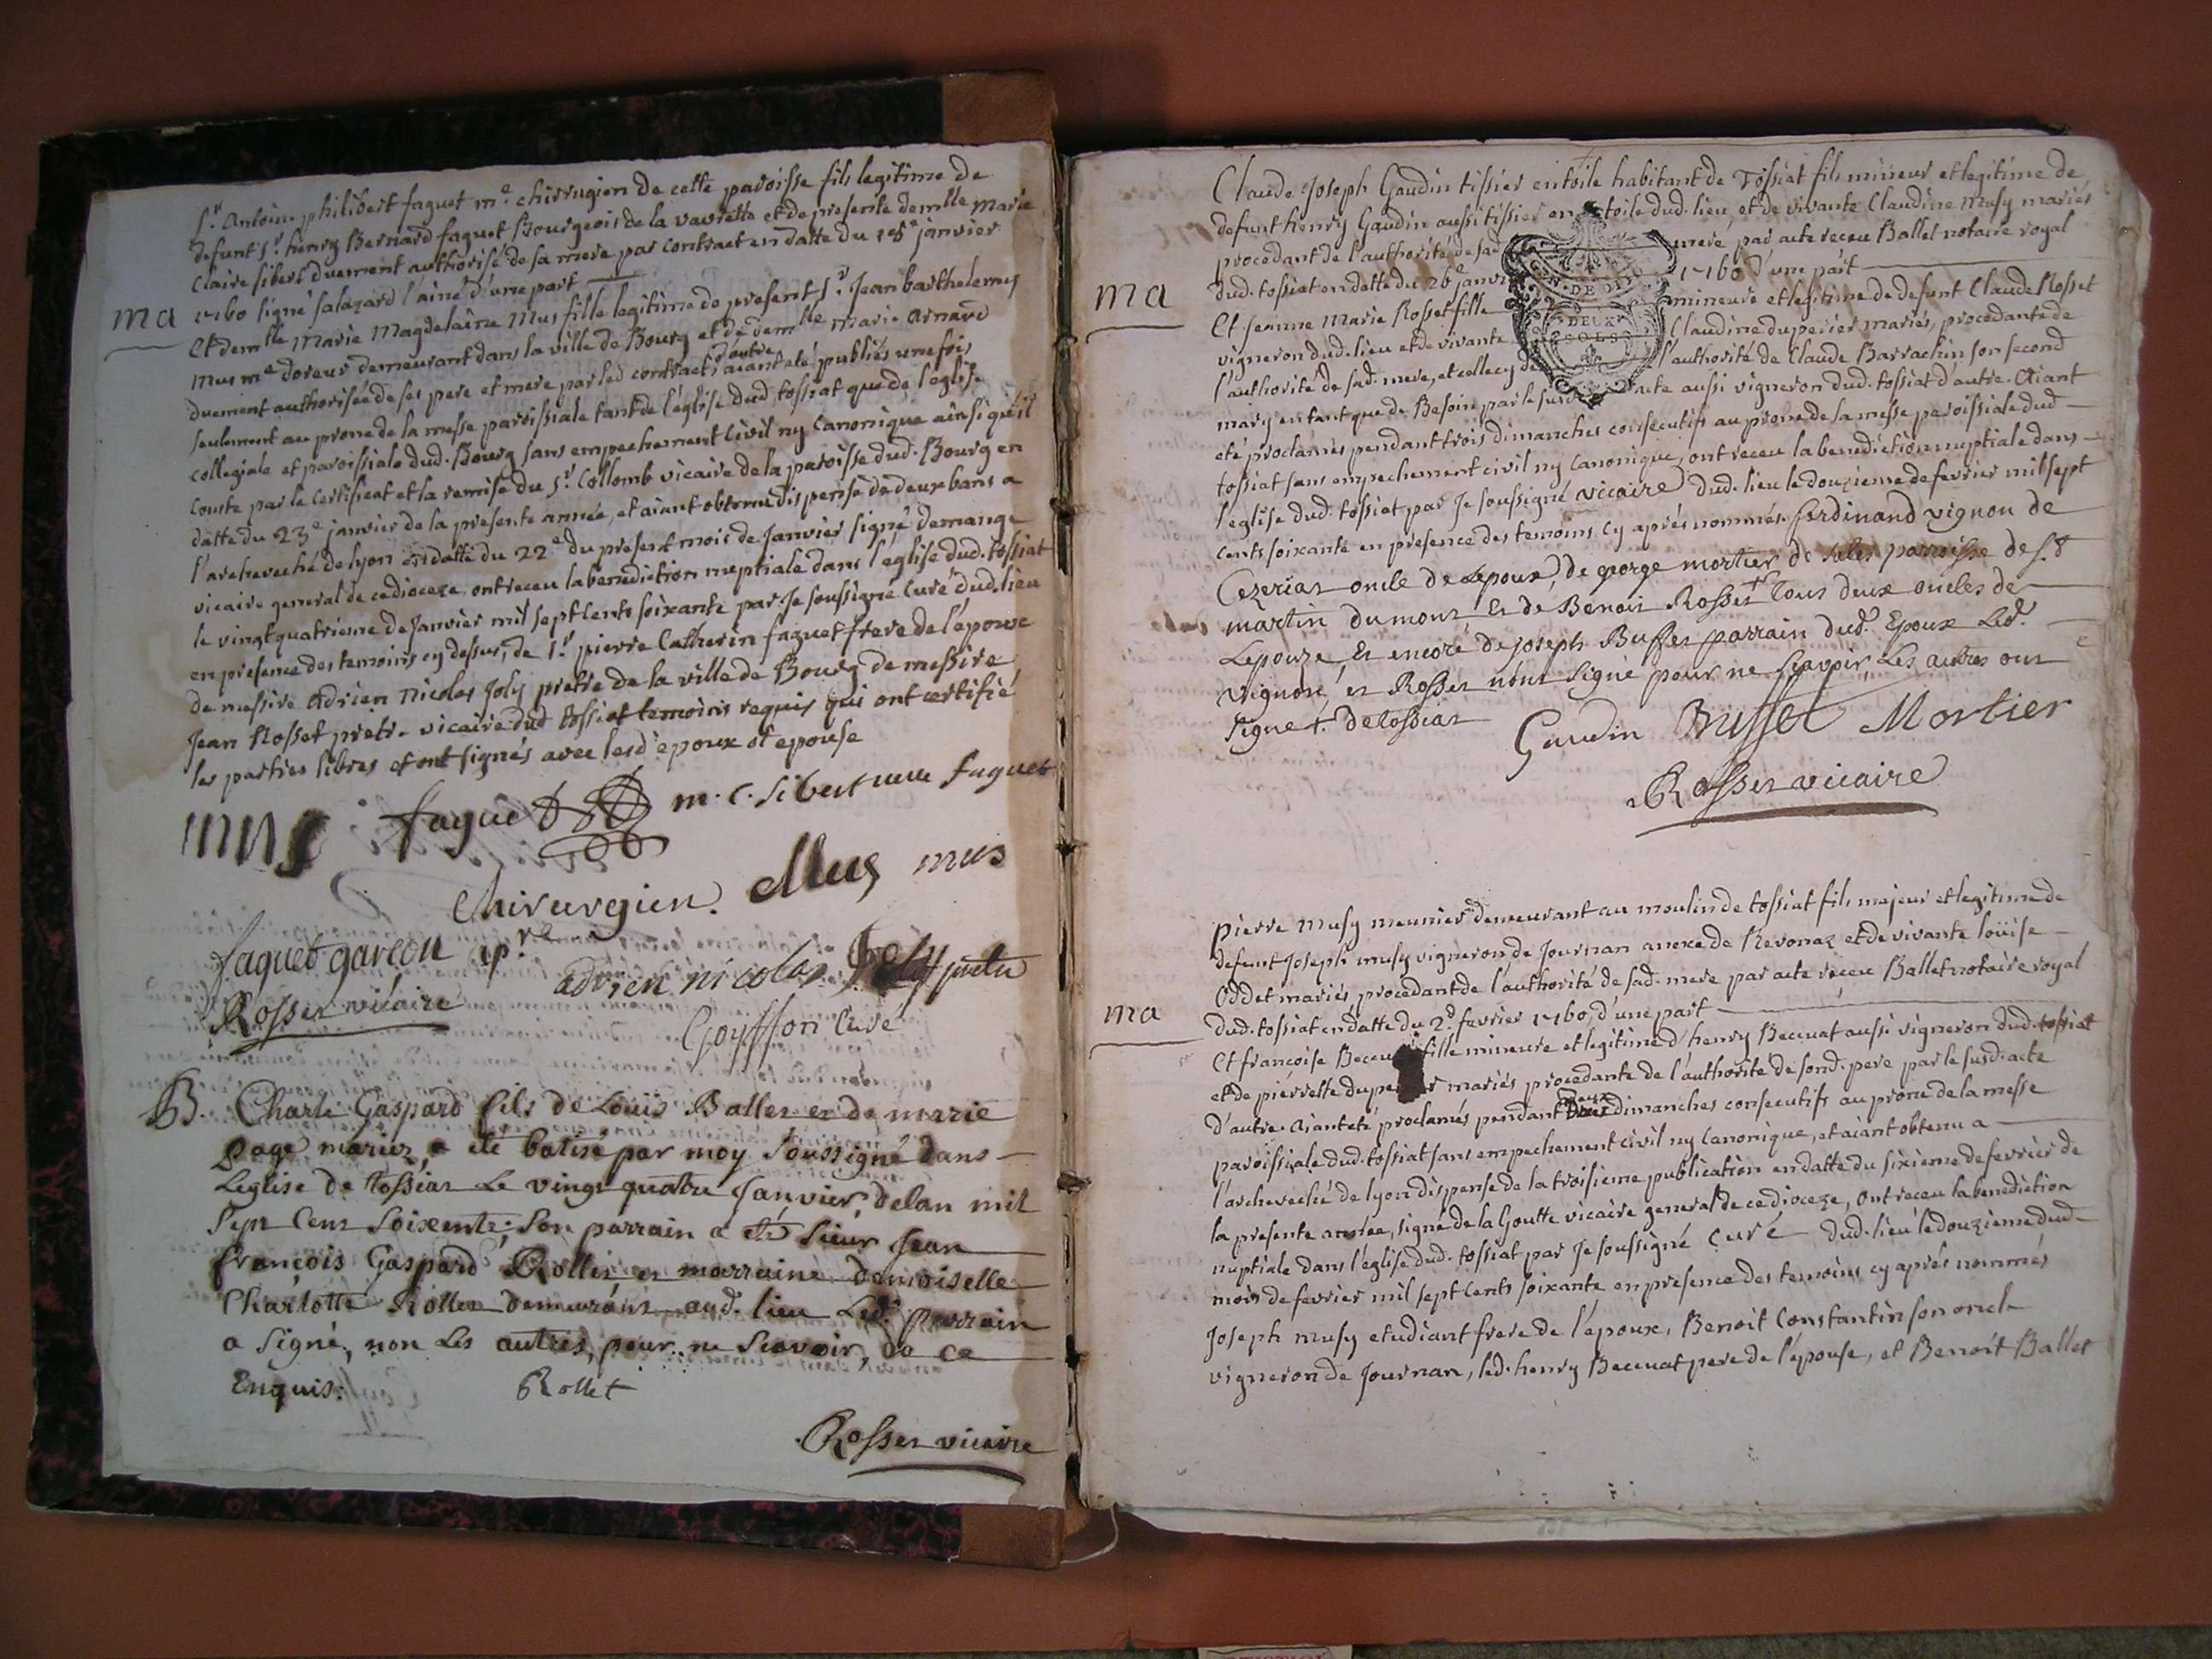 Sr. Antoine philibert faguet me. chirrugien de cette paroisse fils legitime de
defunt Sr. henry Bernard faguet Bourgeois de la vavrette et de presente demlle Marie
Claire sibert duement authorisé de sa mere par contract en datte du 18e janvier
ma
1760 signé salazard l'ainé d'une part
Et demlle Marie Magdelaine Mus fille legitime de present Sr. Jean barthelemy
Mus me doreur demeurant dans la ville de Bourg et de demlle marie Arnard
duement authorisée de ses pere et mere par led contract d'autre aiant eté publiés une fois
seulement au prone de la messe paroissiale tant de l'église dud. tossiat que de l'eglise
collegiale et paroissiale dud. Bourg sans empechement civil ny canonique ainsi qu'il
conste par le certificat et la remise du Sr. Collomb vicaire de la paroisse dud. Bourg en
datte du 23e janvier de la presente année, et aiant obtenu dispense de deux bans a
l'archeveché de lyon en datte du 22e du present mois de Janvier signé demange
vicaire general de ce dioceze, ont receu la benediction nuptiale dans l'eglise dud. tossiat
le vingt quatrieme de Janvier mil sept cents soixante par Je soussigné Curé dud. lieu
en presence des temoins cy dessus, de Sr. pierre Catherin faguet frere de l'epoux
de messire Adrien Nicolas Joly pretre de la ville de Bourg de messire
Jean Rosset pretre vicaire dud tossiat temoins requis qui ont certifié
les parties libres et ont signés avec lesd. epoux et epouse
mus faguet m. c. sibert faguet
Chirurgien. Mus mus
faguet garcon
adrien nicolas Joly pretre
Rosset vicaire
Goyffon Curé
B. Charle Gaspard fils de Louis Ballet et de marie
page mariez a eté batisé par moy soussigné dans
Leglise de Tossiat Le vingt quatre Janvier, de lan mil
sept cent soixente; son parrain a eté sieur Jean
francois Gaspard Rollet et marraine demoiselle
Charlotte Rollet demeurant aud. lieu Led. parrain
a signé, non Les autres, pour ne scavoir, de ce
Enquis.
Rollet
Rosset vicaire
Claude Joseph Gaudin tissier en toile habitant de Tossiat fils mineur et legitime de
defunt henry Gaudin aussi tissier en toile dud. lieu, et de vivante Claudine Musy mariés
procedant de l'authorité de sad mere, par acte receu Ballet notaire royal
dud. tossiat en datte du 26e janvi 1760 d'une part
ma
DEUX
SOLS
Et Jeanne Marie Rosset fille mineure et legitime de defunt Claude Rosset
vigneron dud. lieu et de vivante Claudine duperier mariés, procedante de
l'authorité de sad. mere, et celle cy de l'authorité de Claude Barrachin son second
mary en tant que de Besoin par le susd acte aussi vigneron dud. tossiat d'autre. Aiant
eté proclamés pendant trois dimanches consecutifs au prone de la messe paroissiale dud
tossiat sans empechement civil ny canonique, ont receu la benediction nuptiale dans
l'eglise dud. tossiat par Je soussigné vicaire dud. lieu le douzieme de fevrier mil sept
cents soixante en presence des temoins cy aprés nommés. ferdinand vignon de
Cezeriat oncle de Lepoux, de george mortier de sales parroisse de st
martin du mont, et de Benoit Rosset tous deux oncles de
Lepouze, et encore de joseph Buffet parrain dud. Epoux Led.
vignon et Rosset n'ont signé pour ne scavoir, Les autres ont
signé. de tossiat
Gaudin Buffet Mortier
Rosset vicaire
pierre Musy meunier demeurant au moulin de tossiat fils majeur et legitime de
defunt Joseph musy vigneron de Journan anexe de Revonaz et de vivante loüise
Oddet mariés, procedant de l'authorité de sad. mere par acte receu Ballet notaire royal
ma
dud. tossiat en datte du 2d. fevrier 1760, d'une part
Et francoise Becenat fille mineure et legitime d'henry Becenat aussi vigneron dud. tossiat
et de pierrette duperier mariés procedante de l'authorité de sond. pere par le susd. acte
d'autre. Aiant eté proclamés pendant deux dimanches consecutifs au prone de la messe
paroissiale dud. tossiat sans empechement civil ny canonique, et aiant obtenu a
l'archeveché de lyon dispense de la troisieme publication en datte du sixieme de fevrier de
la presente année, signé de la Goutte vicaire general de ce dioceze, ont receu la benediction
nuptiale dans l'église dud. tossiat par Je soussigné curé dud. lieu le douzieme dud
mois de fevrier mil sept cents soixante en presence des temoins cy aprés nommés
Joseph musy etudiant frere de l'epoux, Benoit Constantin son oncle
vigneron de Journan, led. henry Becenat pere de l'épouse, et Benoit Ballet